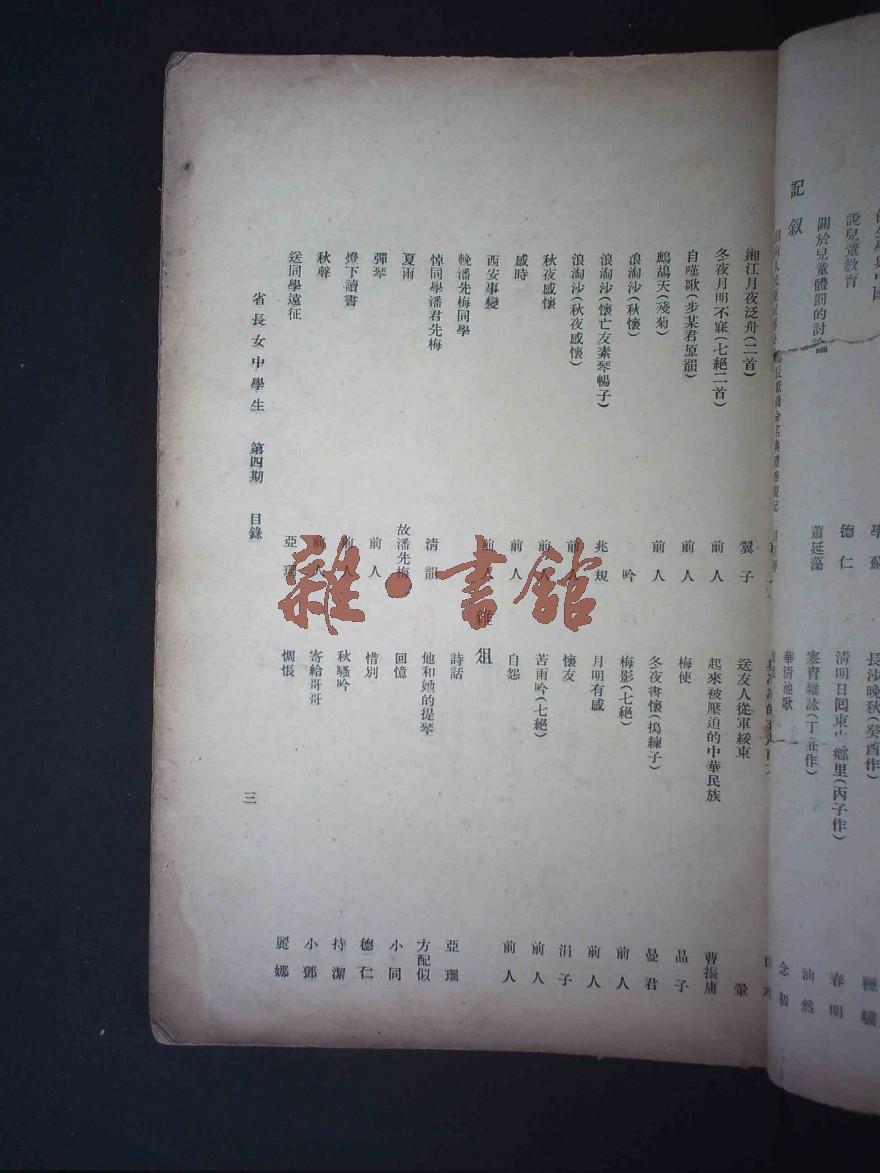 湘江月夜泛舟(二首) 翼子
冬夜月明不寐(七絕二首) 前人
自嘆歌(步某君原韻) 前人
鷓鴣天(殘菊) 前人
浪淘沙(秋懷) 吟
浪淘沙(懷亡友素琴暢子) 兆規
浪淘沙(秋夜感懷) 前人
秋夜感懷 前人
感時 前人
西安事變 前人
輓潘先梅同學 清韻
悼同學潘君先梅
夏雨 故潘先梅
彈琴 前人
燈下讀書 前人
秋聲 前人
送同學遠征 亞珊
送友人從軍綏東 暈
起來被壓迫的中華民族 曹振庸
梅使 品子
冬夜書懷(搗練子) 曼君
梅影(七絕) 前人
月明有感 前人
懷友 涓子
苦雨吟(七絕) 前人
自怨 前人
雜俎
詩話 亞珊
他和她的提琴 方配似
回憶 小同
惜別 德仁
秋騷吟 持潔
寄給哥哥 小鄧
惆悵 麗娜
省長女中學生 第四期 目錄
三
說兒童教育 德仁
關於兒童體罰的討論 蕭延藻
記敘
長沙晚秋(癸酉作)
清明日回東 鄉里(丙子作) 春明
寒宵雜詠(丁丑作) 汕然
華清池歌 念初
雜·書館